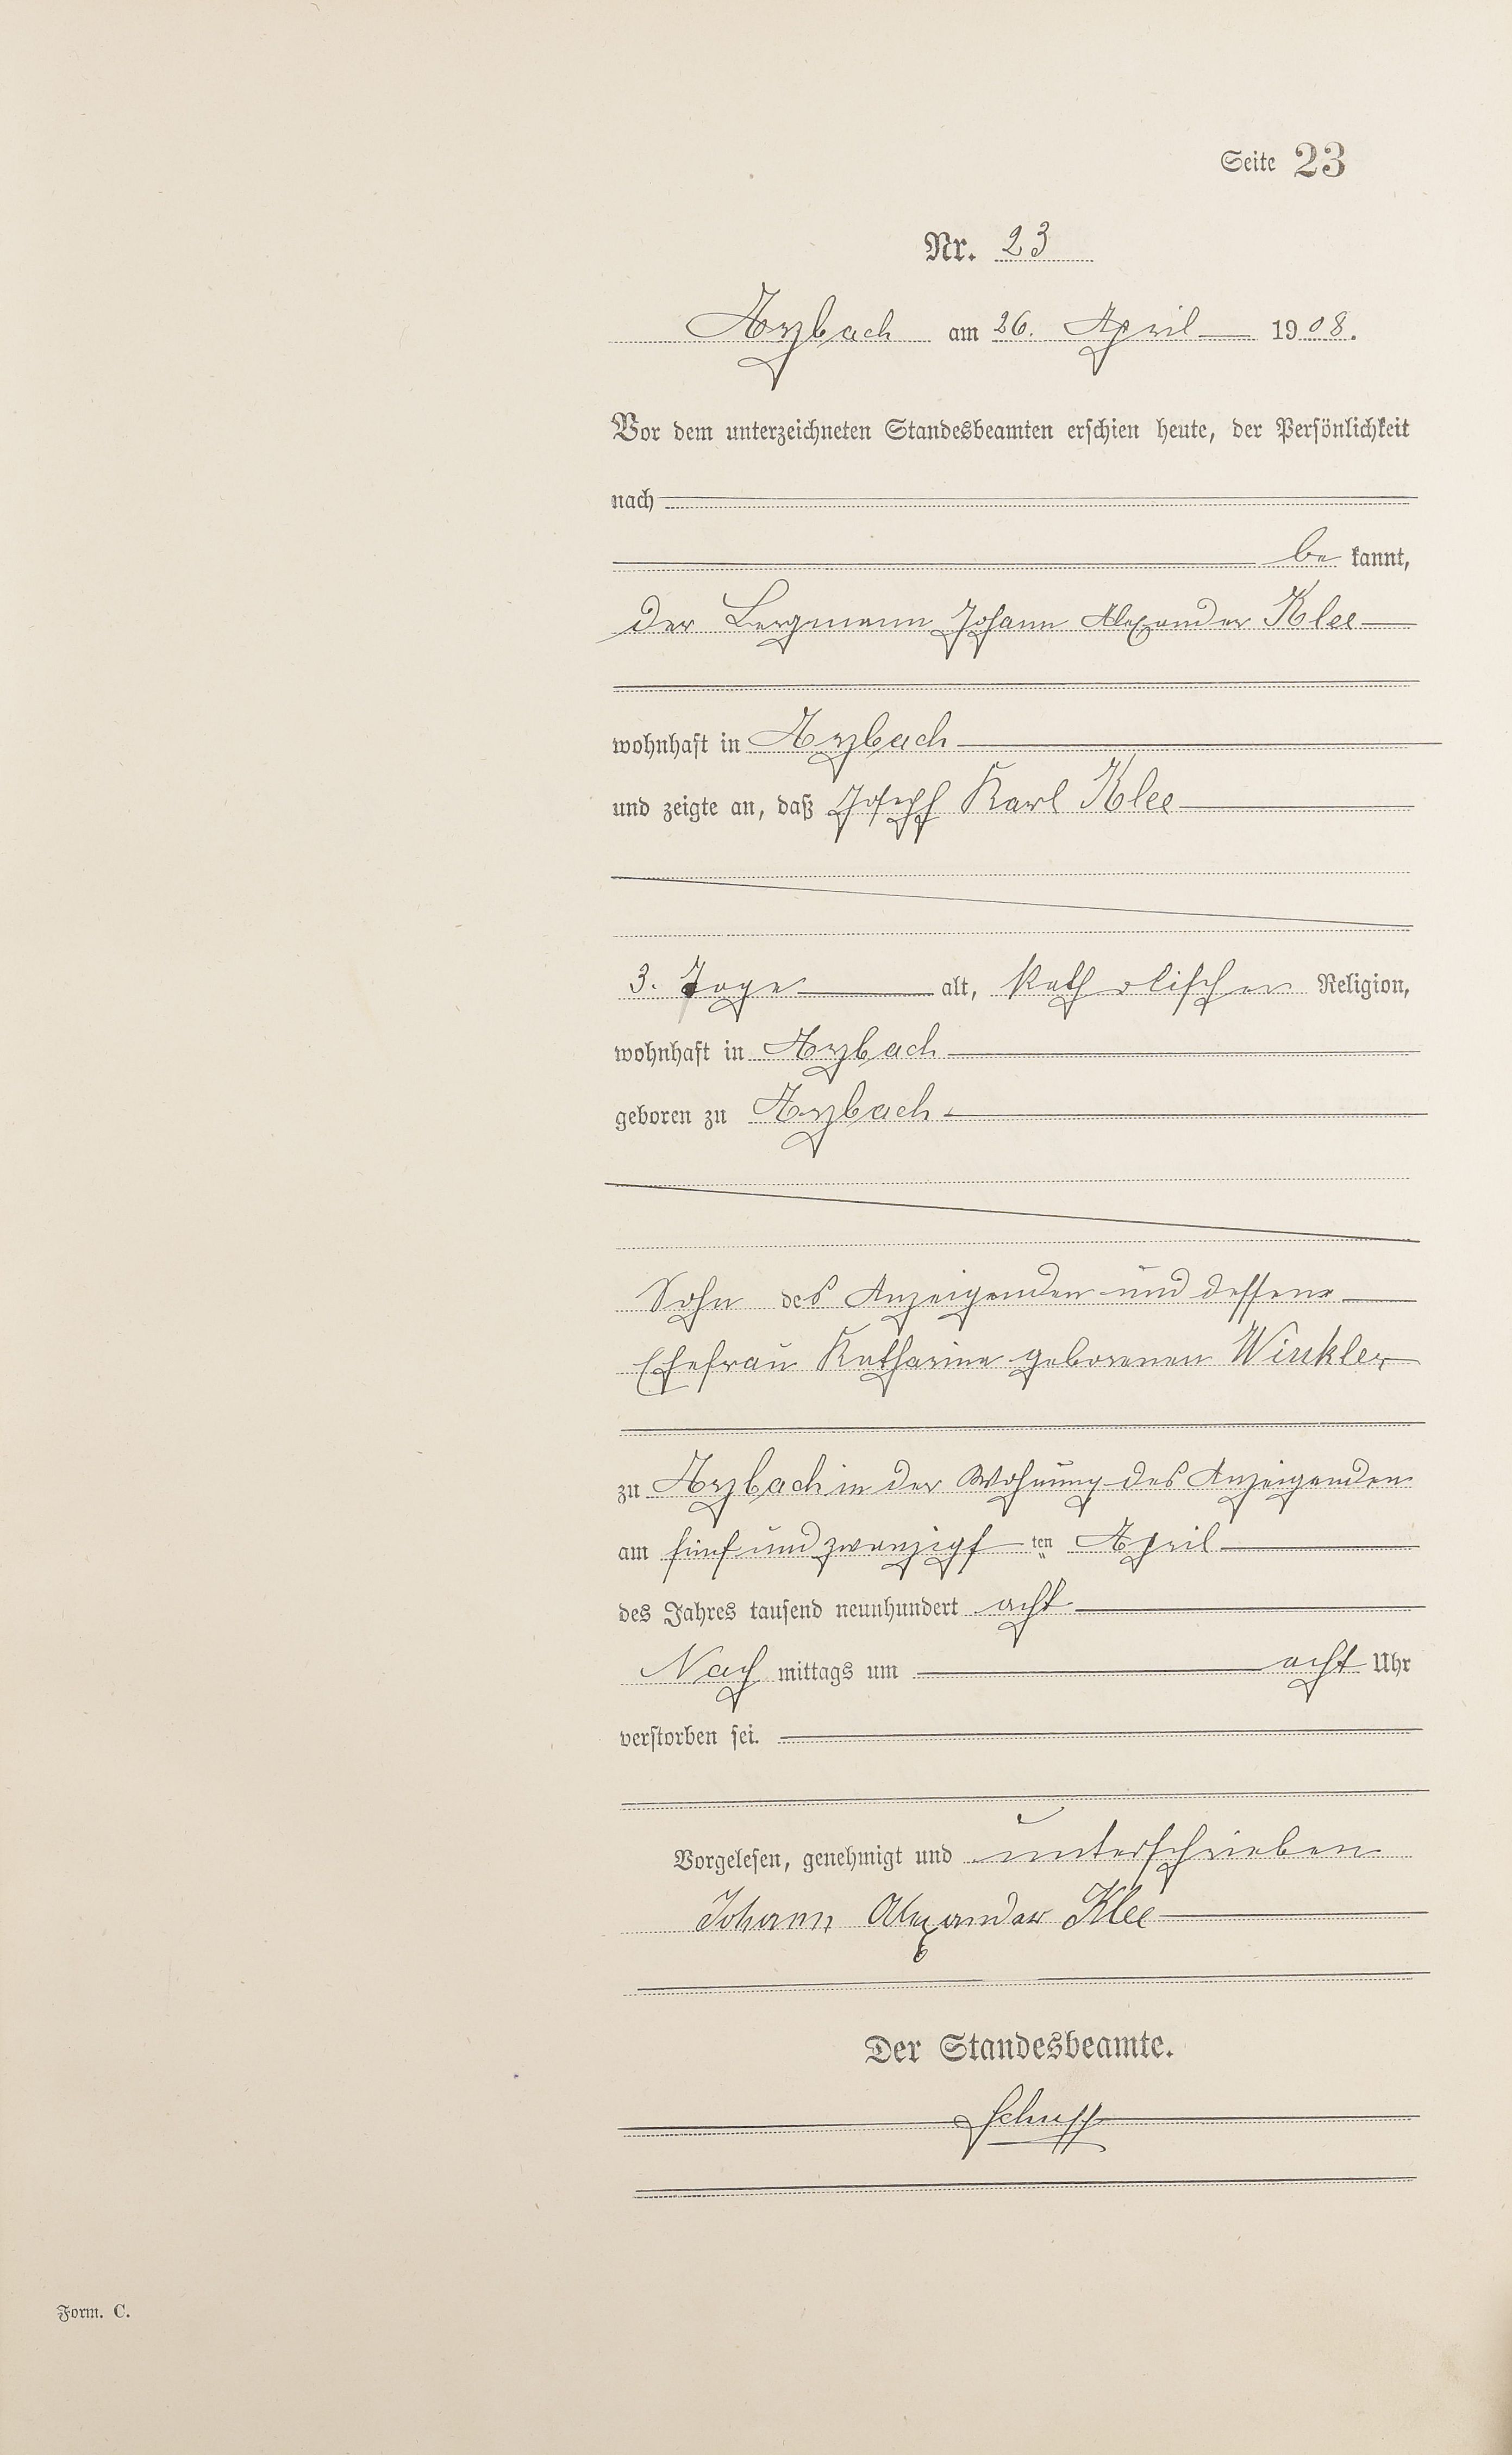 Seite 23
Nr. 23
Arzbach am 26. April 1908.
Vor dem unterzeichneten Standesbeamten erschien heute, der Persönlichkeit
nach
be kannt,
der Bergmann Johann Alexander Klee
wohnhaft in Arzbach
und zeigte an, daß Joseph Karl Klee
3. Tage alt, katholischer Religion,
wohnhaft in Arzbach
geboren zu Arzbach
Sohn des Anzeigenden und dessen
Ehefrau Katharina geborenen Winkler
zu Arzbach in der Wohnung des Anzeigenden
am fünf und zwanzigsten April
des Jahres tausend neunhundert acht
Nach mittags um acht Uhr
verstorben sei.
Vorgelesen, genehmigt und unterschrieben
Johann Alexander Klee
Der Standesbeamte.
Form. C.